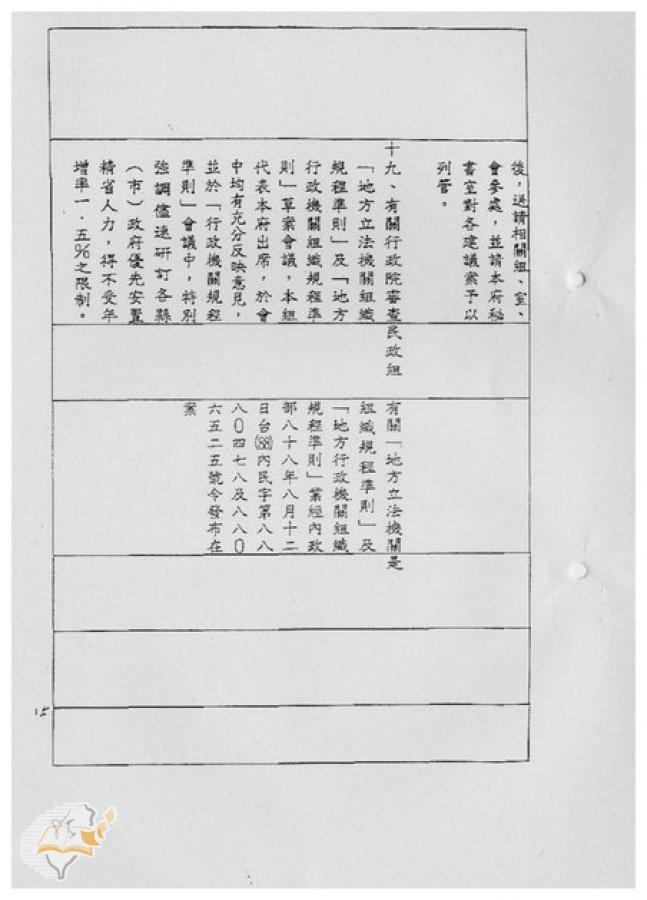 後，送請相關組、室、
會參處，並請本府秘
書室對各建議案予以
列管。
十九、有關行政院審查
「地方立法機關組織
規程準則」及「地方
行政機關組織規程準
則」草案會議，本組
代表本府出席，於會
中均有充分反映意見，
並於「行政機關規程
準則」會議中，特別
強調儘速研訂各縣
（市）政府優先安置
精省人力，得不受年
增率一．五％之限制。
民政組
有關「地方立法機關
組織規程準則」及
「地方行政機關組織
規程準則」業經內政
部八十八年八月十二
日台(88)內民字第八八
八〇四七八及八八〇
六五二五號令發布在
案
是
15